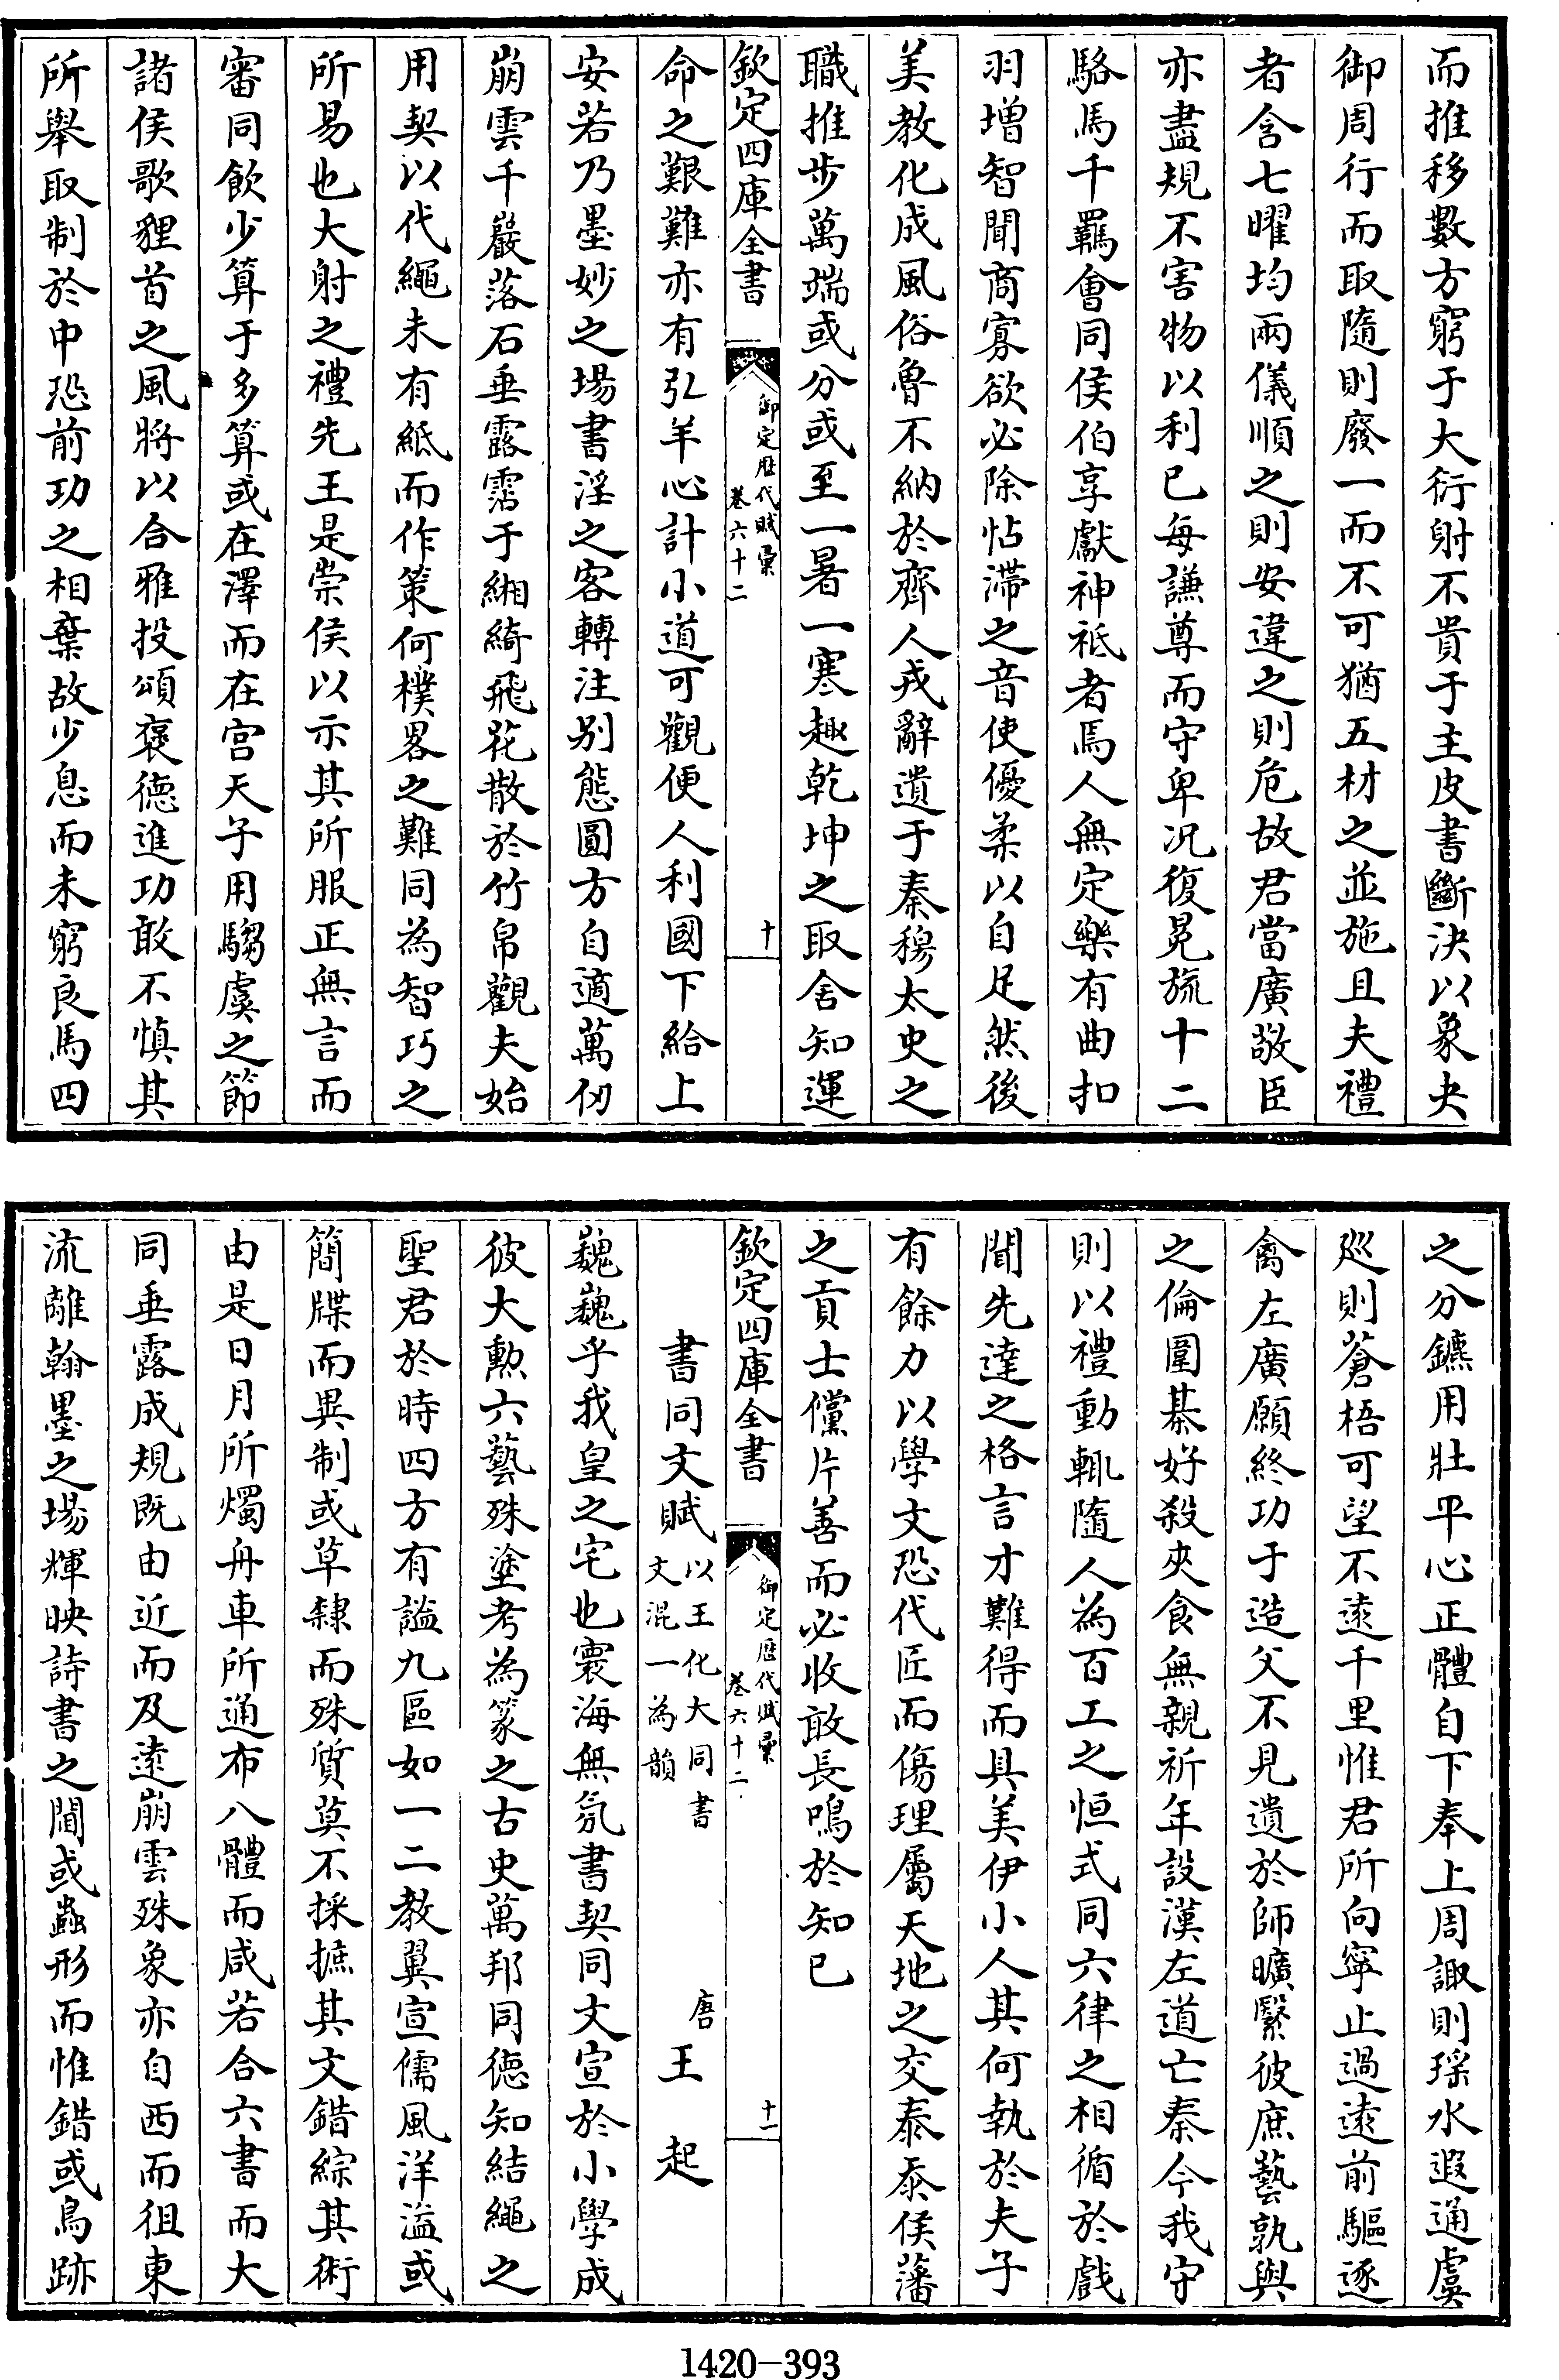 而推移數方窮于大衍射不貴于主皮書斷決以象夬
御周行而取隨則廢一而不可猶五材之並施且夫禮
者含七曜均兩儀順之則安違之則危故君當廣敬臣
亦盡規不害物以利已每謙尊而守卑况復冕旒十二
駱馬千羈會同侯伯享獻神祇者焉人無定樂有曲扣
羽增智聞商寡欲必除怗滯之音使優柔以自足然後
美教化成風俗魯不納於齊人戎辭遺于秦穆太史之
職推步萬端或分或至一暑一寒趣乾坤之取舍知運
欽定四庫全書
御定歷代賦彙
卷六十二
十
命之艱難亦有弘羊心計小道可觀便人利國下給上
安若乃墨妙之場書淫之客轉注别態圓方自適萬仞
崩雲千巖落石垂露霑于緗綺飛花散於竹帛觀夫始
用契以代繩未有紙而作策何樸畧之難同為智巧之
所易也大射之禮先王是崇侯以示其所服正無言而
審同飲少算于多算或在澤而在宫天子用騶虞之節
諸侯歌貍首之風將以合雅投頌褒德進功敢不慎其
所舉取制於中恐前功之相棄故少息而未窮良馬四
之分鑣用壯平心正體自下奉上周諏則瑶水遐通虞
廵則蒼梧可望不逺千里惟君所向寧止過逺前驅逐
禽左廣願終功于造父不見遺於師曠繄彼庶藝孰與
之倫圍棊好殺夾食無親祈年設漢左道亡秦今我守
則以禮動輒隨人為百工之恒式同六律之相循於戲
聞先達之格言才難得而具美伊小人其何執於夫子
有餘力以學文恐代匠而傷理屬天地之交泰忝侯藩
之貢士儻片善而必收敢長鳴於知已
欽定四庫全書
御定歷代賦彙
卷六十二
十一
書同文賦以王化大同書
文混一為韻
唐王起
巍巍乎我皇之宅也寰海無氛書契同文宣於小學成
彼大勲六藝殊塗考為篆之古史萬邦同徳知結繩之
聖君於時四方有謐九區如一二教翼宣儒風洋溢或
簡牒而異制或草隸而殊質莫不採摭其文錯綜其術
由是日月所燭舟車所通布八體而咸若合六書而大
同垂露成規既由近而及逺崩雲殊象亦自西而徂東
流離翰墨之場輝映詩書之間或蟲形而惟錯或鳥跡
1420-393